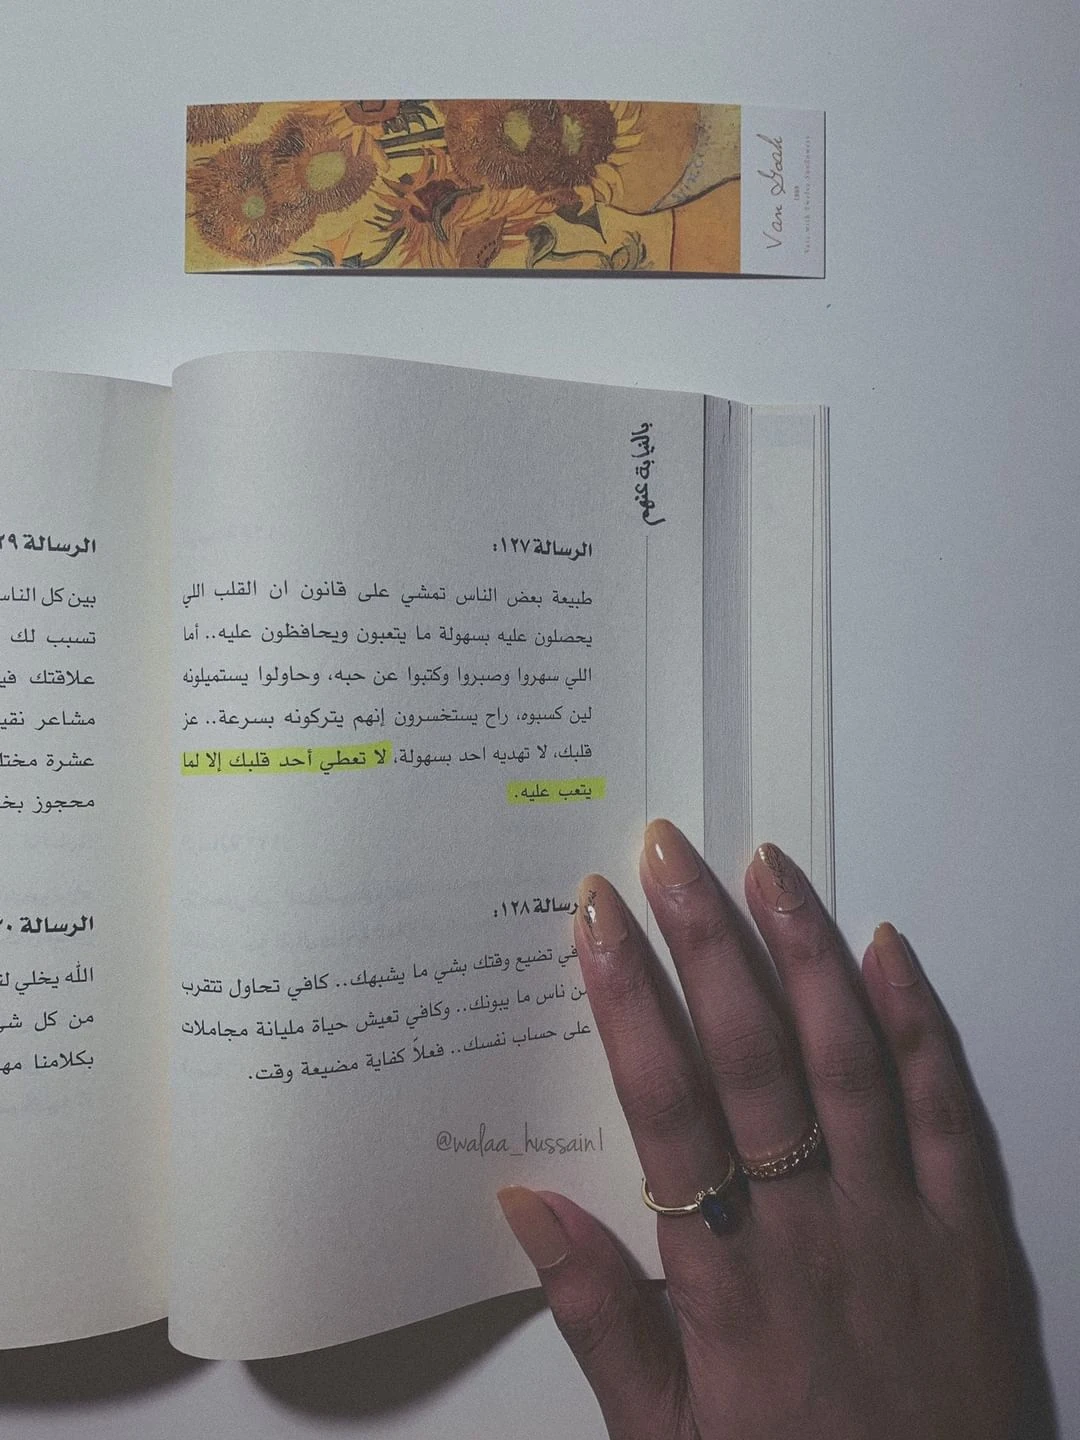 Van Gogh
1888
Vase with Twelve Sunflowers
Vincent
بالنيابة عنهم
الرسالة ١٢٧:
طبيعة بعض الناس تمشي على قانون ان القلب اللي
يحصلون عليه بسهولة ما يتعبون ويحافظون عليه.. أما
اللي سهروا وصبروا وكتبوا عن حبه، وحاولوا يستميلونه
لين كسبوه، راح يستخسرون إنهم يتركونه بسرعة.. عز
قلبك، لا تهديه احد بسهولة، لا تعطي أحد قلبك إلا لما
يتعب عليه.
رسالة ١٢٨:
في تضيع وقتك بشي ما يشبهك.. كافي تحاول تتقرب
من ناس ما يبونك.. وكافي تعيش حياة مليانة مجاملات
على حساب نفسك.. فعلاً كفاية مضيعة وقت.
@walaa_hussain1
الرسالة ٢٩
بين كل الناس
تسبب لك
علاقتك
مشاعر
عشرة
محجوز
الرسالة
الله يخلي
من كل
بكلامنا